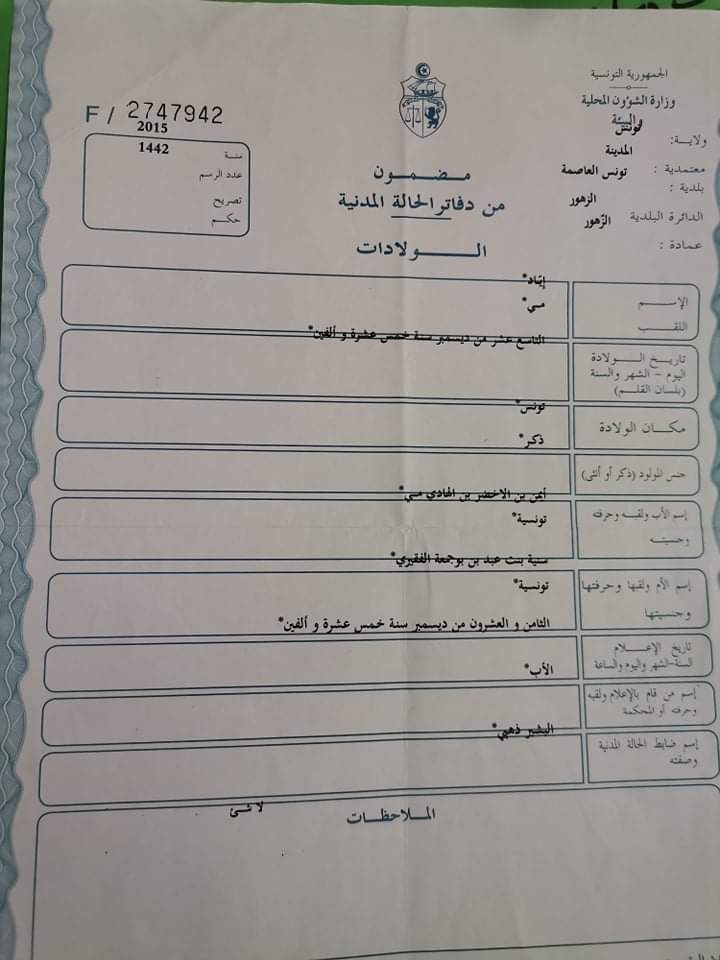 الجمهورية التونسية
وزارة الشؤون المحلية
والبيئة
ولاية: تونس
معتمدية : المدينة
بلدية : تونس العاصمة
الدائرة البلدية الزهور
عمادة : الزهور
F / 2747942
سنة 2015
عدد الرسم 1442
تصريح
حكم
مضمون
من دفاتر الحالة المدنية
الولادات
الإسم إيّاد*
اللقب مي*
تاريخ الولادة
اليوم - الشهر والسنة
(بلسان القلم)
التاسع عشر من ديسمبر سنة خمس عشرة و ألفين*
مكان الولادة تونس*
جنس المولود (ذكر أو أنثى) ذكر*
إسم الأب ولقبه وحرفته
وجنسيته
أيمن بن الاخضر بن الهادي مي*
تونسية*
إسم الأم ولقبها وحرفتها
وجنسيتها
سنية بنت عبد بن بوجمعة الفقيري*
تونسية*
تاريخ الإعلام
السنة-الشهر واليوم والساعة
الثامن و العشرون من ديسمبر سنة خمس عشرة و ألفين*
إسم من قام بالإعلام ولقبه
وحرفته أو المحكمة
الأب*
إسم ضابط الحالة المدنية
وصفته
البشير ذهبي*
الملاحظات
لا شئ